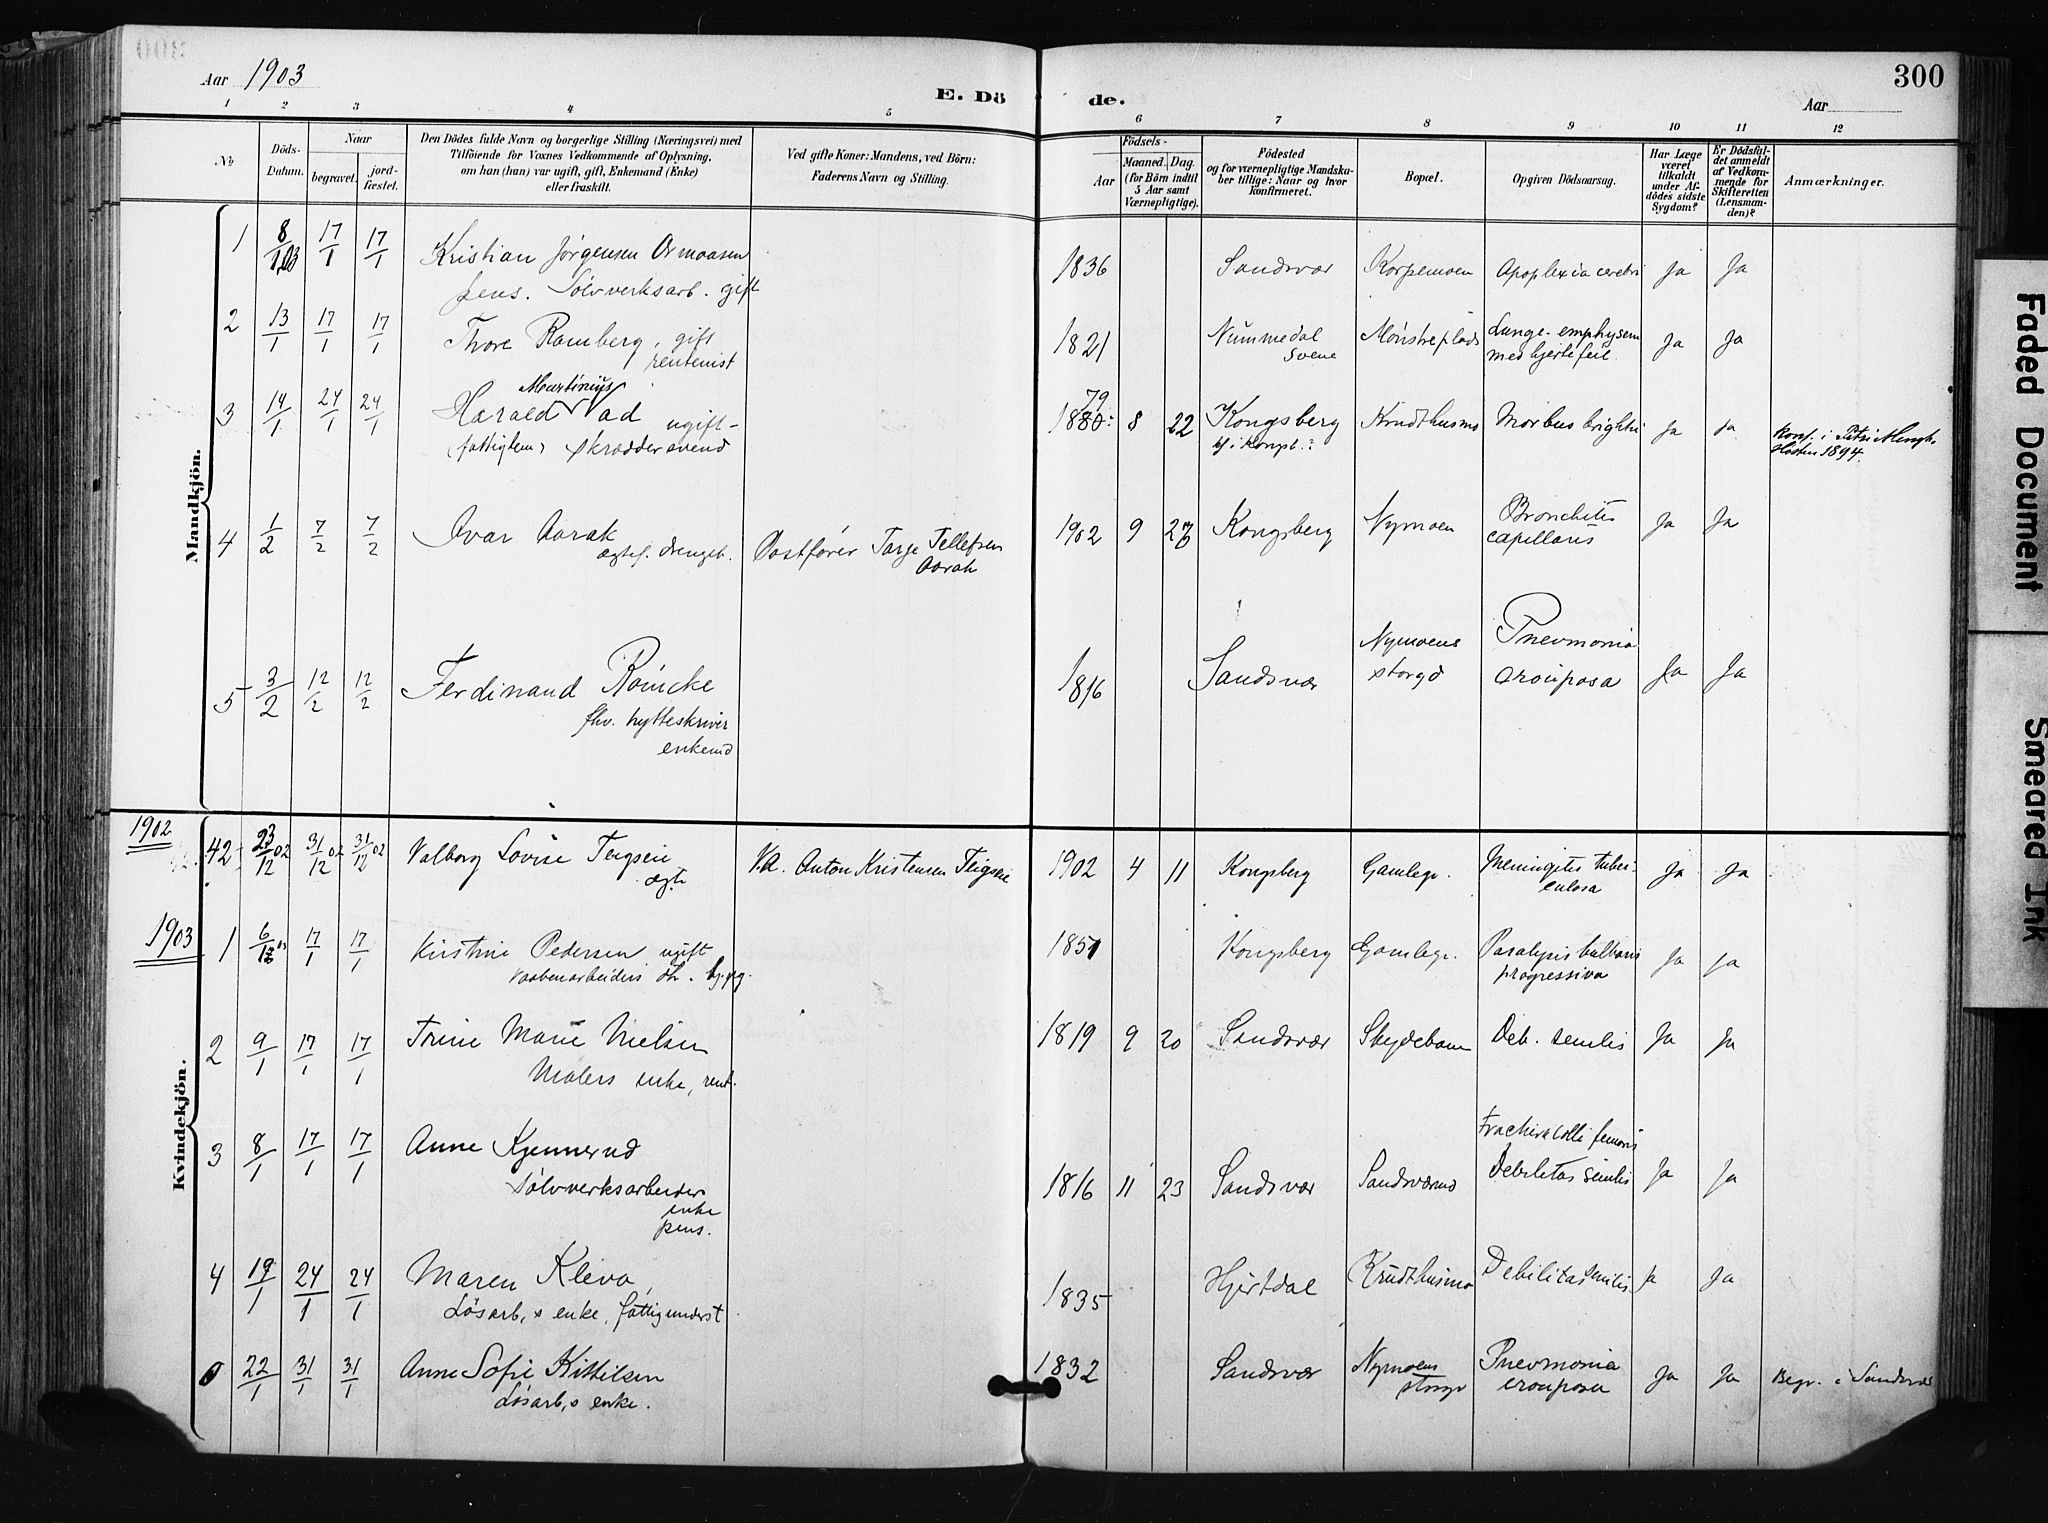 300
Aar 1903
E. Dö
de.
Aar
1 2 3 4 5 6 7 8 9 10 11 12
No
Döds-
Datum.
Naar
begravet.
jord-
fæstet.
Den Dödes fulde Navn og borgerlige Stilling (Næringsvei) med
Tilföiende for Voxnes Vedkommende af Oplysning,
om han (hun) var ugift, gift, Enkemand (Enke)
eller fraskilt.
Ved gifte Koner: Mandens, ved Börn:
Faderens Navn og Stilling.
Födsels-
Aar
Maaned.
Dag.
(for Börn indtil
5 Aar samt
Værnepligtige).
Födested
og for værnepligtige Mandska-
ber tillige: Naar og hvor
konfirmeret.
Bopæl.
Opgiven Dödsaarsag.
Har Læge
været
tilkaldt
under Af-
dödes sidste
Sygdom?
Er Dödsfal-
det anmeldt
af Vedkom-
mende for
Skifteretten
(Lensman-
den)?
Anmærkninger.
Mandkjön.
1 8/1 03 17/1 17/1 Kristian Jørgensen Ormaasen 1836 Sandsvær Korpemoen Apoplexia cerebri Ja Ja
pens. Sølvverksarb. gift
2 13/1 17/1 17/1 Thore Ramberg, gift 1821 Nummedal Mønstreplads Lunge-emphysem Ja Ja
rentenist Svene med hjertefeil.
3 14/1 24/1 24/1 Harald Martinius Vad ugift 1880 79 8 22 Kongsberg Krudthusmo Morbus brightii Ja Ja
(fattiglem) skræddersvend
Høsten 1894.
4 1/2 7/2 7/2 Ivar Aarak Postfører Tarje Tellefsen 1902 9 27 Kongsberg Nymoen Bronchitis Ja Ja
ægtef. drengeb. Aarak capillaris
5 3/2 12/2 12/2 Ferdinand Røincke 1816 Sandsvær Nymoens Pnevmonia Ja Ja
fhv. hytteskriver storgd crouposa
enkemd
Kvindekjön.
1902
42 23/12 02 31/12 02 31/12 02 Valborg Lovise Teigseie V.A. Anton Kristensen Teigseie 1902 4 11 Kongsberg Gamlegr. Meningitis tuber- Ja Ja
ægte culosa
1903
1 6/1 03 17/1 17/1 Kirstine Pedersen ugift 1851 Kongsberg Gamlegr. Paralysis bulbaris Ja Ja
Vaabenarbeiders dt. progressiva
2 9/1 17/1 17/1 Trine Marie Nielsen 1819 9 20 Sandsvær Skydebanen Deb. senilis Ja Ja
Malers enke, rent.
3 8/1 17/1 17/1 Anne Kjennerud 1816 11 23 Sandsvær Sandsværmo Fractura colli femoris Ja Ja
Sølvverksarbeider Debilitas senilis
enke
pens.
4 19/1 24/1 24/1 Maren Kleva, 1835 Hjertdal Krudthusmo Debilitas senilis Ja Ja
Løsarb,s enke, fattigunderst
22/1 31/1 31/1 Anne Sofie Kittilsen 1832 Sandsvær Nymoens Pnevmonia Ja Ja Begr. i Sandsvær
Løsarb,s enke. storgd crouposa
Faded Document
Smeared Ink